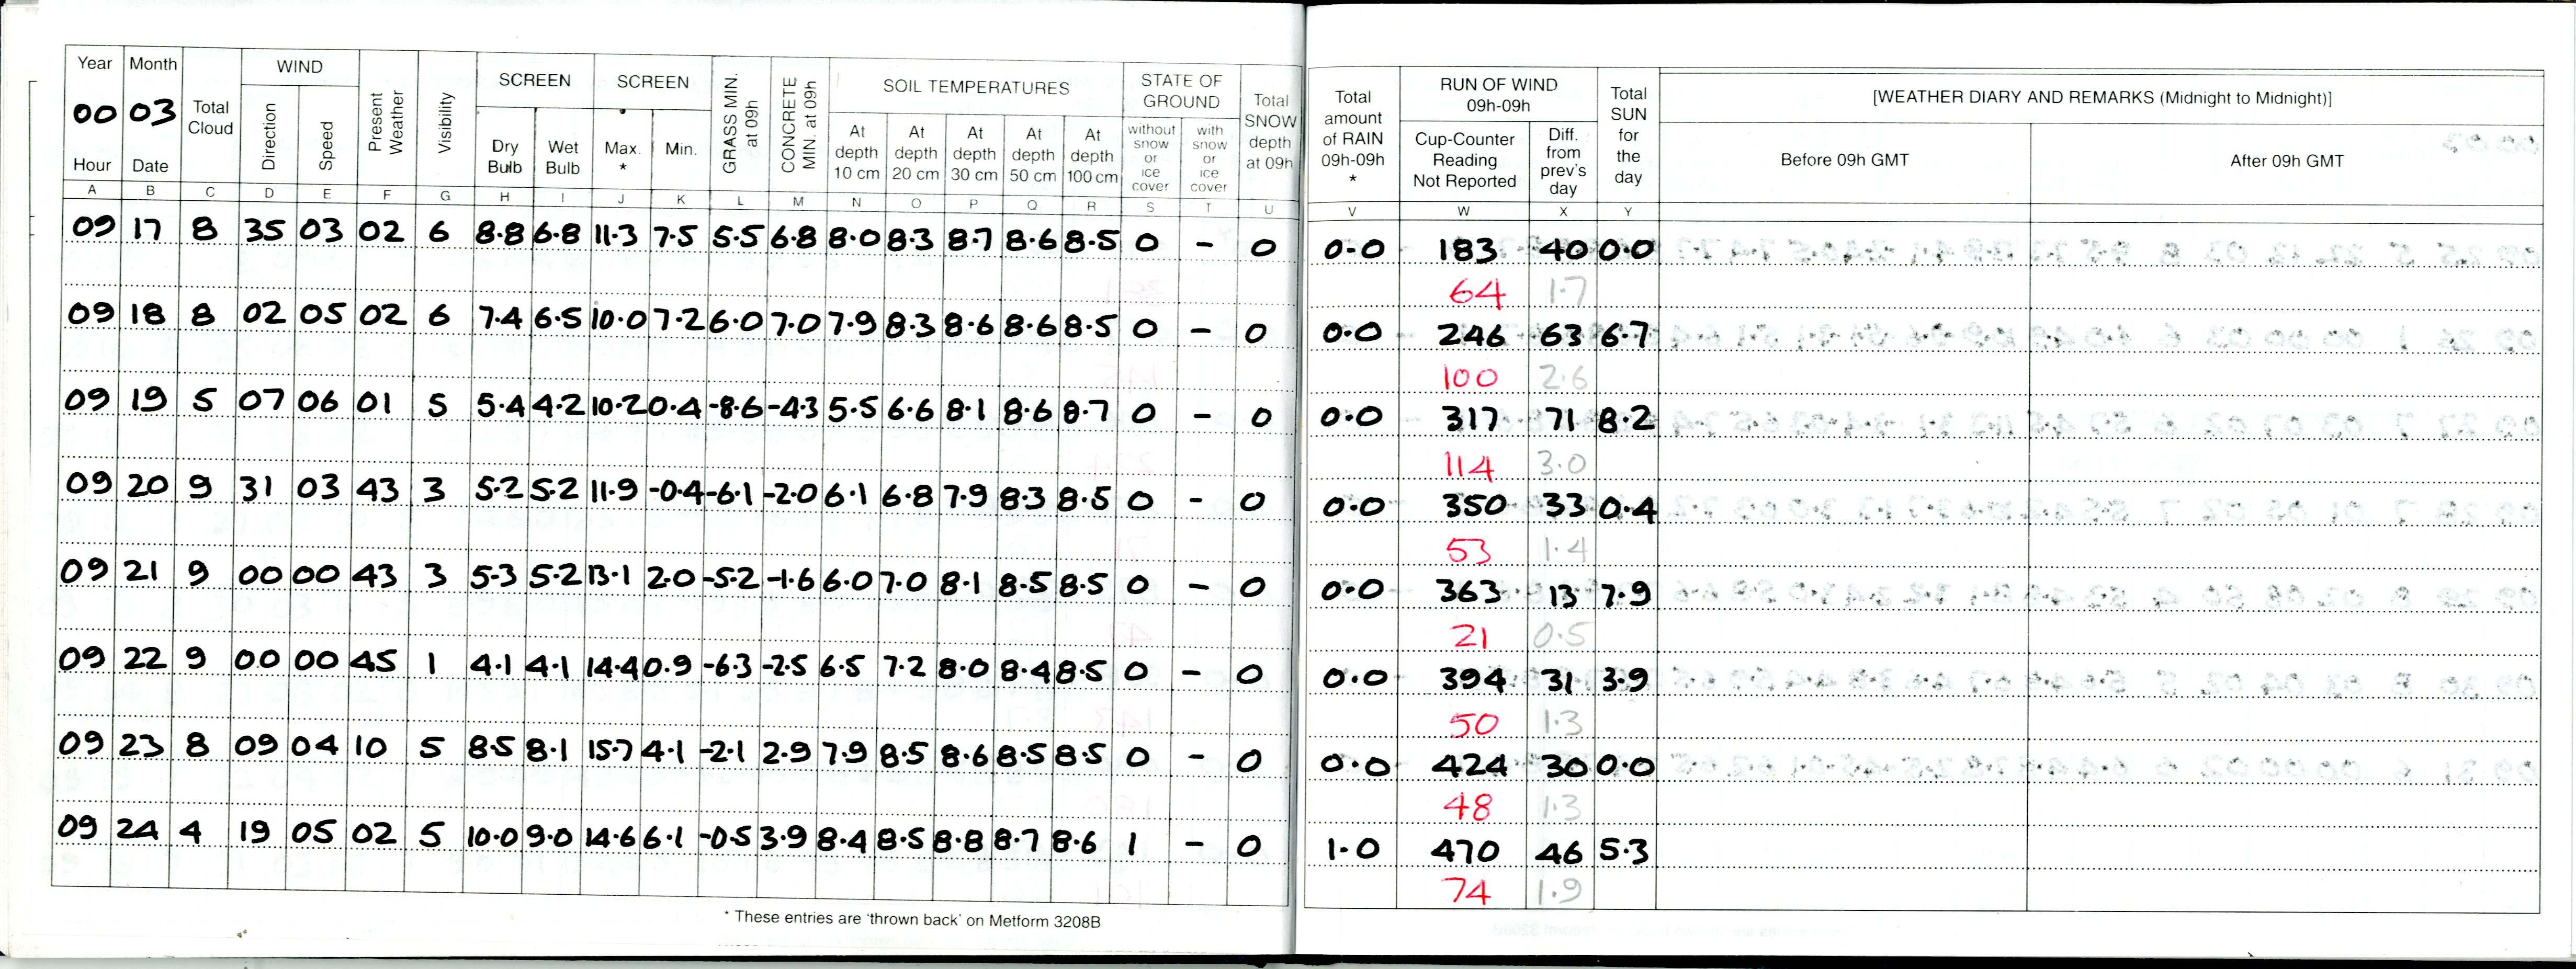 Year Month Total Cloud WIND Present Weather Visibility SCREEN SCREEN GRASS MIN. at 09h CONCRETE MIN. at 09h SOIL TEMPERATURES STATE OF GROUND Total SNOW depth at 09h Total amount of RAIN 09h-09h * RUN OF WIND 09h-09h Total SUN for the day [WEATHER DIARY AND REMARKS (Midnight to Midnight)]
00 03 Direction Speed Dry Bulb Wet Bulb Max. * Min. At depth 10 cm At depth 20 cm At depth 30 cm At depth 50 cm At depth 100 cm without snow or ice cover with snow or ice cover Cup-Counter Reading Not Reported Diff. from prev's day Before 09h GMT After 09h GMT
Hour Date
A B C D E F G H I J K L M N O P Q R S T U V W X Y
09 17 8 35 03 02 6 8.8 6.8 11.3 7.5 5.5 6.8 8.0 8.3 8.7 8.6 8.5 0 - 0 0.0 183 40 0.0
64 1.7
09 18 8 02 05 02 6 7.4 6.5 10.0 7.2 6.0 7.0 7.9 8.3 8.6 8.6 8.5 0 - 0 0.0 246 63 6.7
100 2.6
09 19 5 07 06 01 5 5.4 4.2 10.2 0.4 -8.6 -4.3 5.5 6.6 8.1 8.6 8.7 0 - 0 0.0 317 71 8.2
114 3.0
09 20 9 31 03 43 3 5.2 5.2 11.9 -0.4 -6.1 -2.0 6.1 6.8 7.9 8.3 8.5 0 - 0 0.0 350 33 0.4
53 1.4
09 21 9 00 00 43 3 5.3 5.2 13.1 2.0 -5.2 -1.6 6.0 7.0 8.1 8.5 8.5 0 - 0 0.0 363 13 7.9
21 0.5
09 22 9 00 00 45 1 4.1 4.1 14.4 0.9 -6.3 -2.5 6.5 7.2 8.0 8.4 8.5 0 - 0 0.0 394 31 3.9
50 1.3
09 23 8 09 04 10 5 8.5 8.1 15.7 4.1 -2.1 2.9 7.9 8.5 8.6 8.5 8.5 0 - 0 0.0 424 30 0.0
48 1.3
09 24 4 19 05 02 5 10.0 9.0 14.6 6.1 -0.5 3.9 8.4 8.5 8.8 8.7 8.6 1 - 0 1.0 470 46 5.3
74 1.9
* These entries are 'thrown back' on Metform 3208B